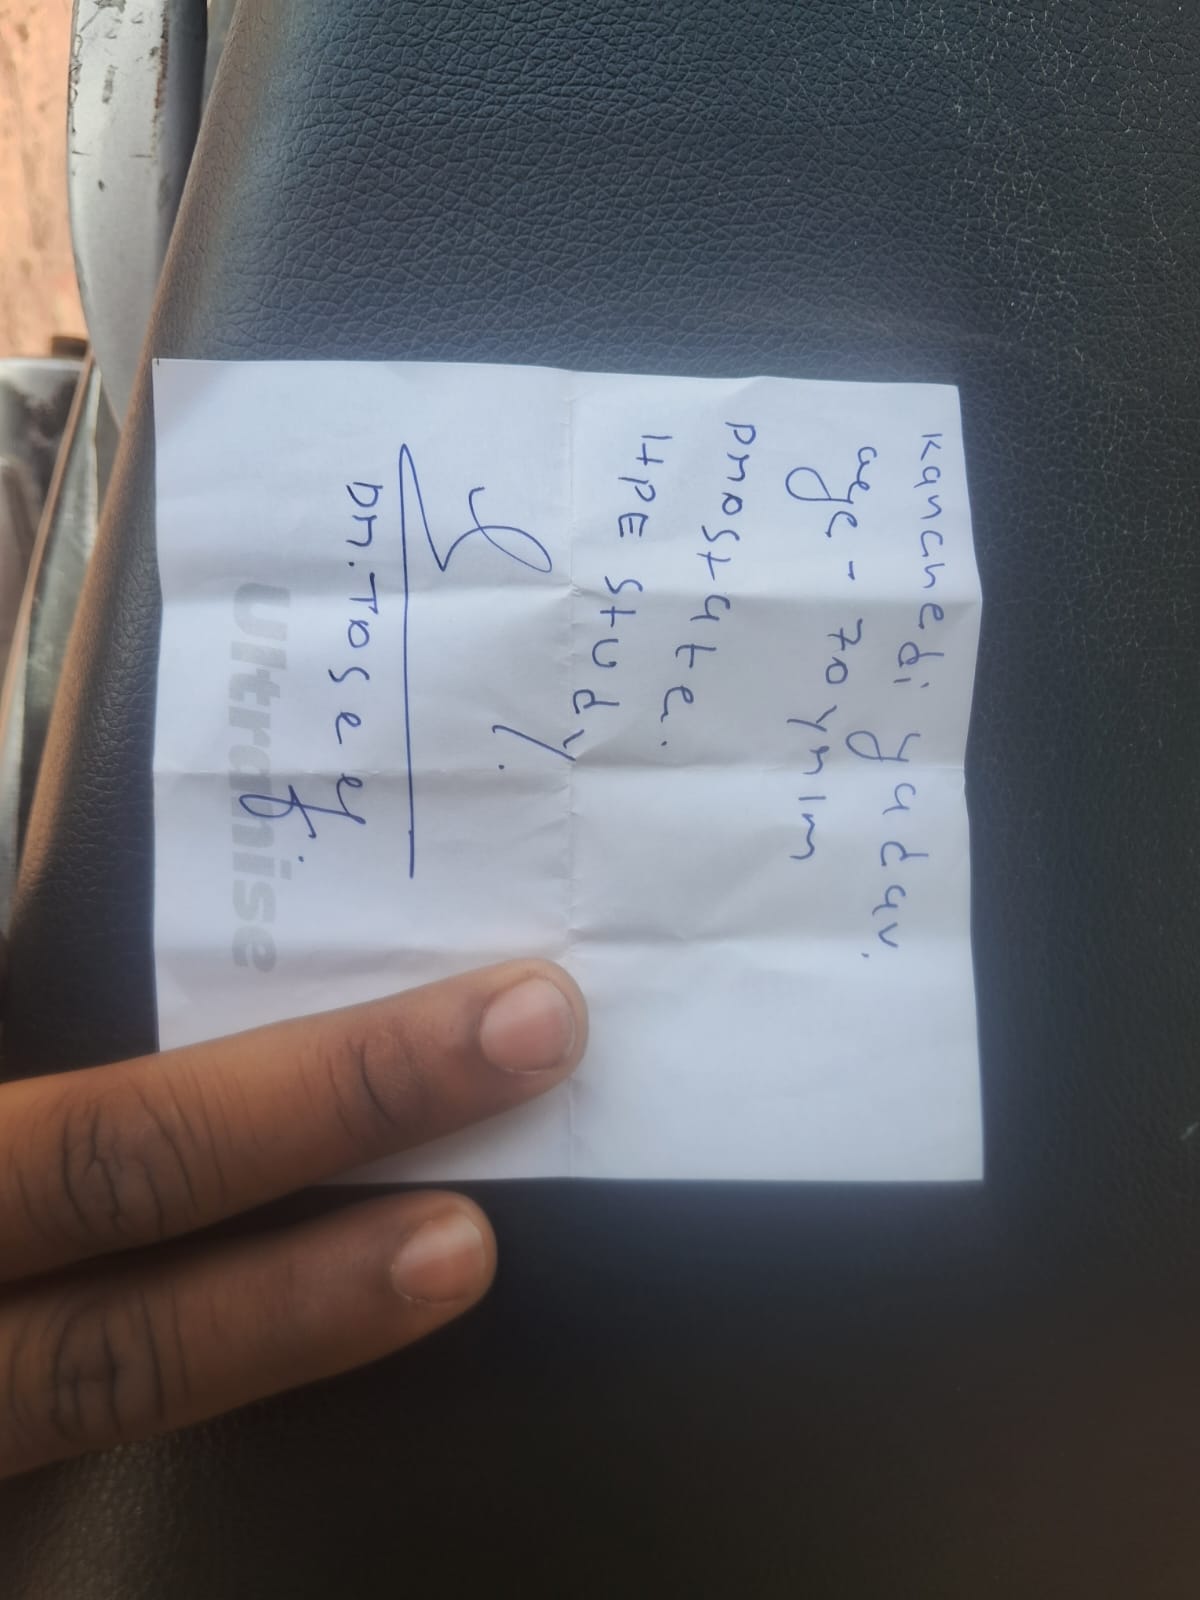 Kanahedi yadav.
age - 70 yr/m
Prostate.
HPE Study
Dr. Toseef
Ultranise